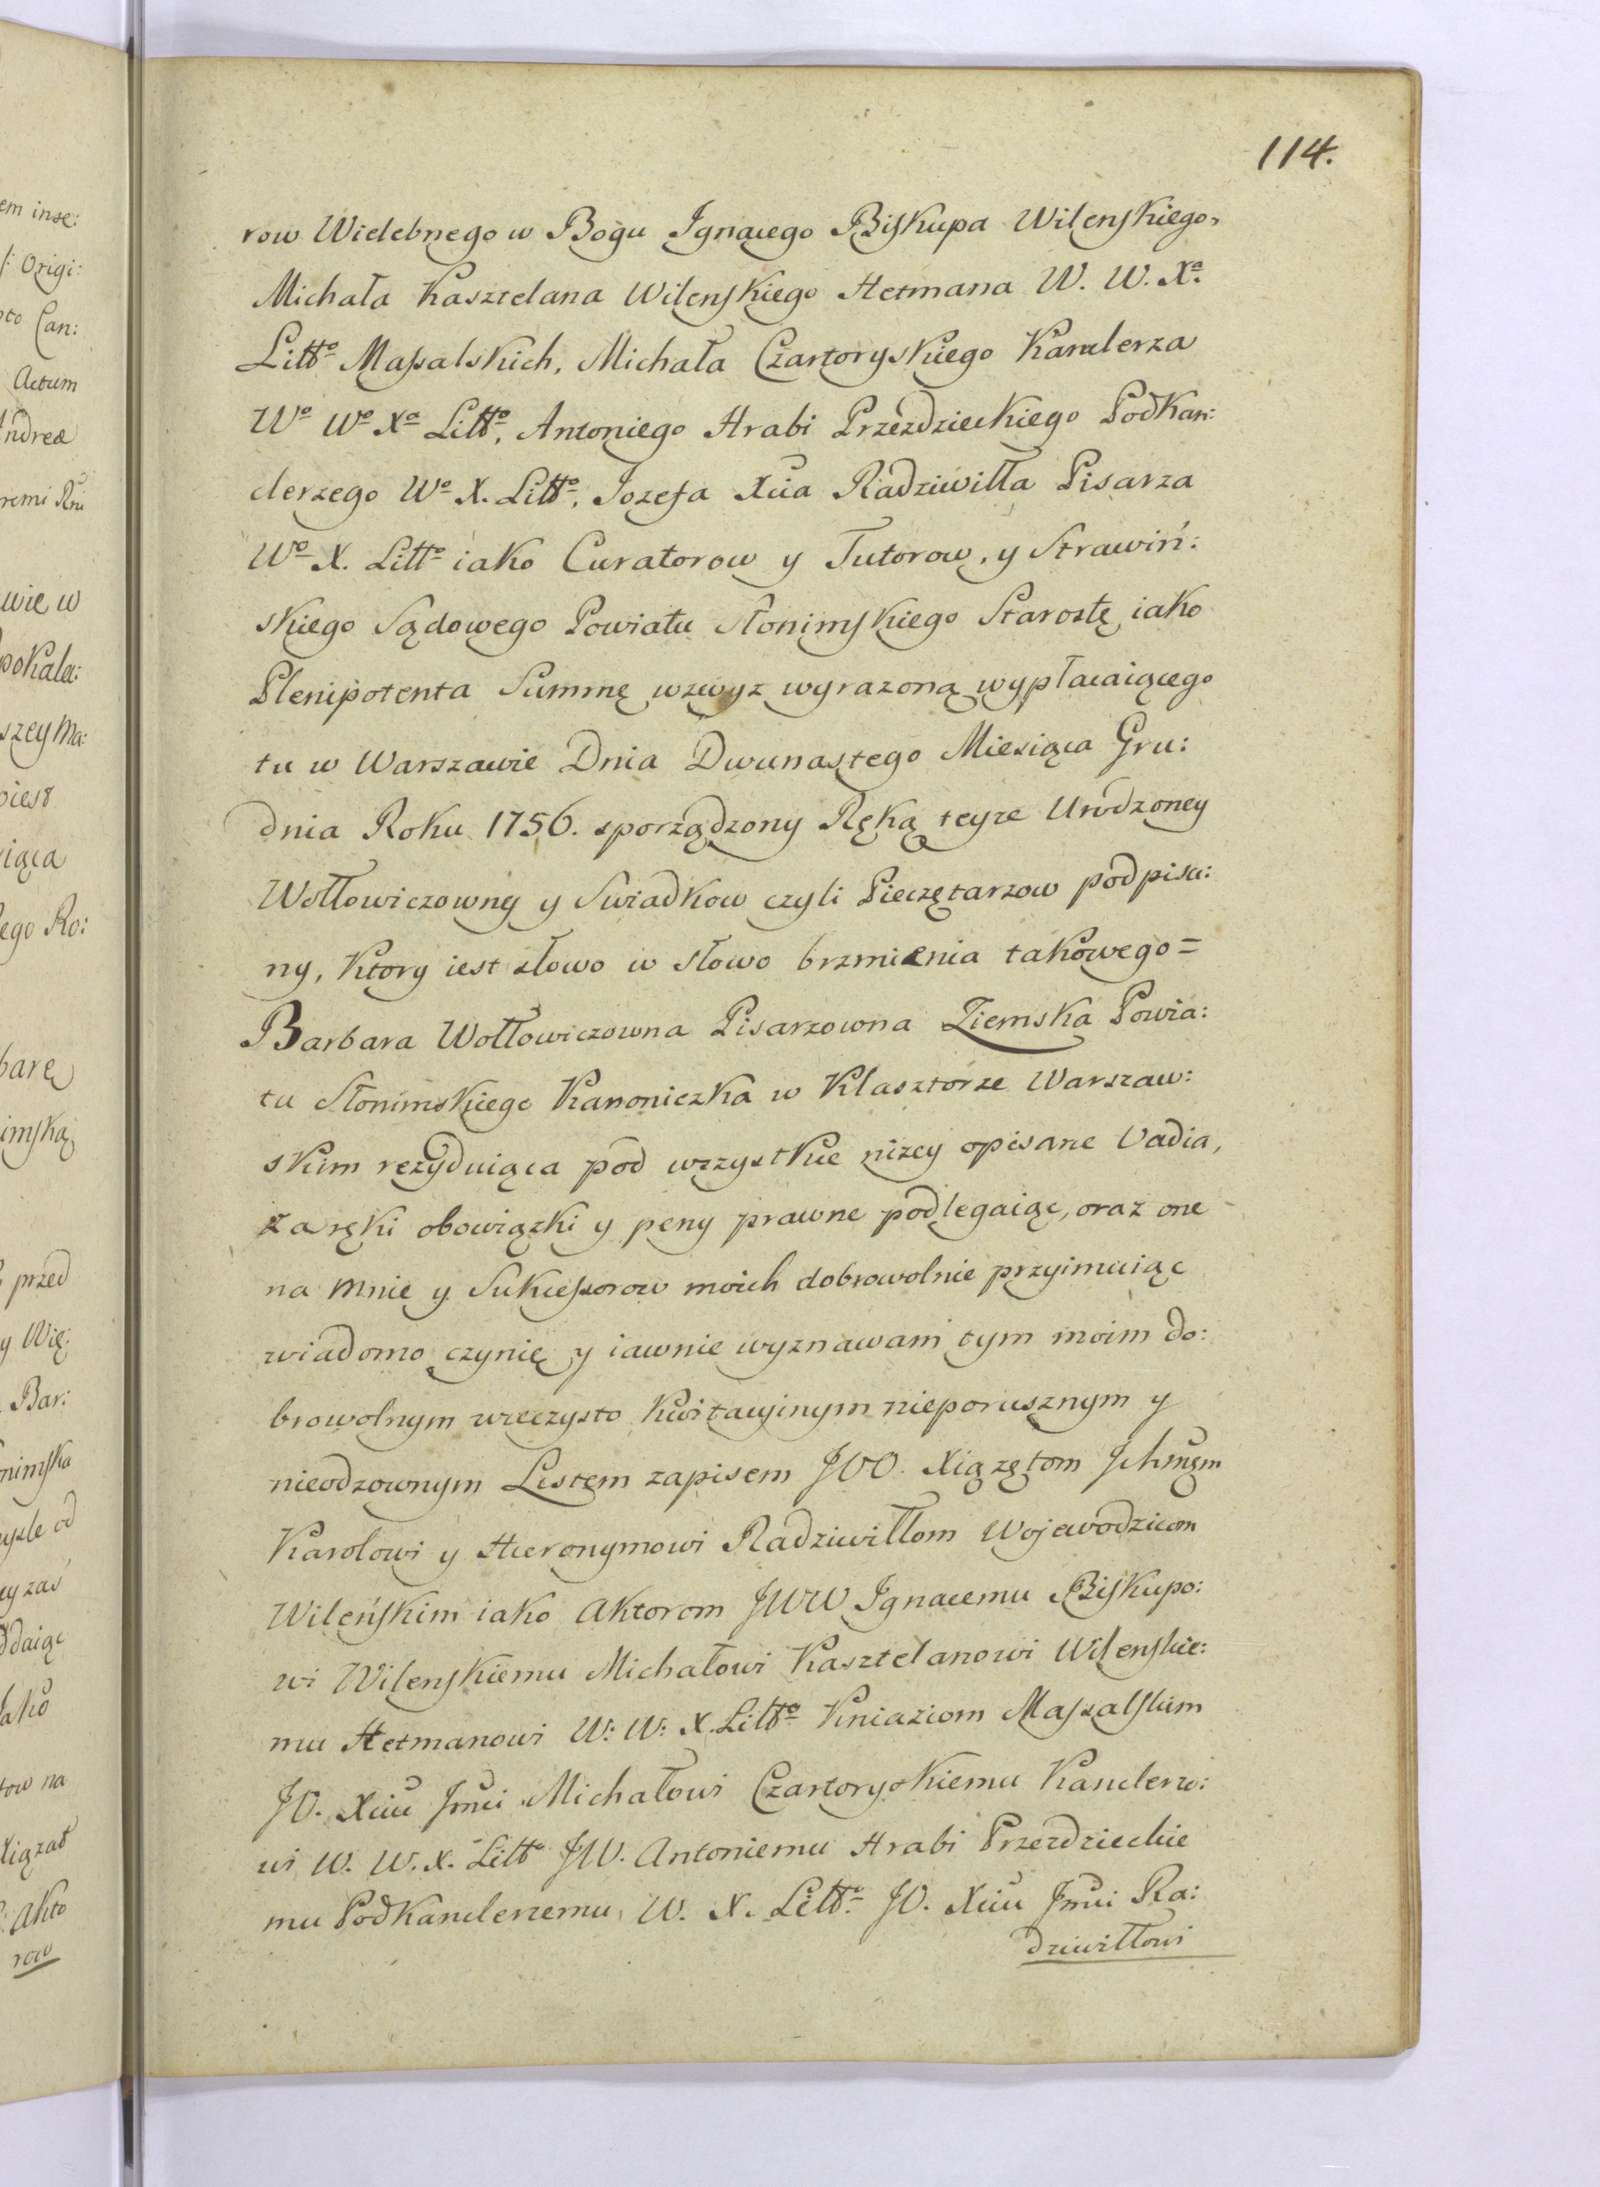 114.
row Wielebnego w Bogu Jgnacego Biskupa Wilenskiego,
Michała Kasztelana Wilenskiego Hetmana W. W. Xa
Litto Massalskich, Michała Czartoryskiego Kanclerza
Wo Wo Xa Litto, Antoniego Hrabi Przezdzieckiego Podkan:
clerzego Wo X. Litto, Jozefa Xcia Radziwiłła Pisarza
Wo X. Litto iako Curatorow y Tutorow, y Strawiń:
skiego Sądowego Powiatu Słonimskiego Starostę iako
Plenipotenta Summę wzwyz wyrazoną wypłacaiącego
tu w Warszawie Dnia Dwunastego Miesiąca Gru:
dnia Roku 1756. sporządzony Ręką teyze Urodzoney
Wołłowiczowny y Swiadkow czyli Pieczętarzow podpisa:
ny, Ktory iest słowo w słowo brzmienia takowego =
Barbara Wołłowiczowna Pisarzowna Ziemska Powia:
tu Słonimskiego Kanoniczka w Klasztorze Warszaw:
skim rezyduiąca pod wszystkie nizey opisane Vadia,
zaręki obowiązki y peny prawne podlegaiąc, oraz one
na mnie y Sukcessorow moich dobrowolnie przyimuiąc
wiadomo czynię y iawnie wyznawam tym moim do:
browolnym wieczysto Kwitacyinym nieporusznym y
nieodzownym Listem zapisem JOO. Xiązętom Jchmcm
Karolowi y Hieronymowi Radziwiłłom Wojewodzicom
Wileńskim iako Aktorom JWW Jgnacemu Biskupo:
wi Wilenskiemu Michałowi Kasztelanowi Wilenskie:
mu Hetmanowi W: W: X. Litto Kniaziom Massalskim
JO. Xciu Jmci Michałowi Czartoryskiemu Kanclerzo:
wi W. W. X. Litto JW. Antoniemu Hrabi Przezdzieckie
mu Podkanclerzemu W. X. Litto JO. Xciu Jmci Ra:
dziwiłłowi